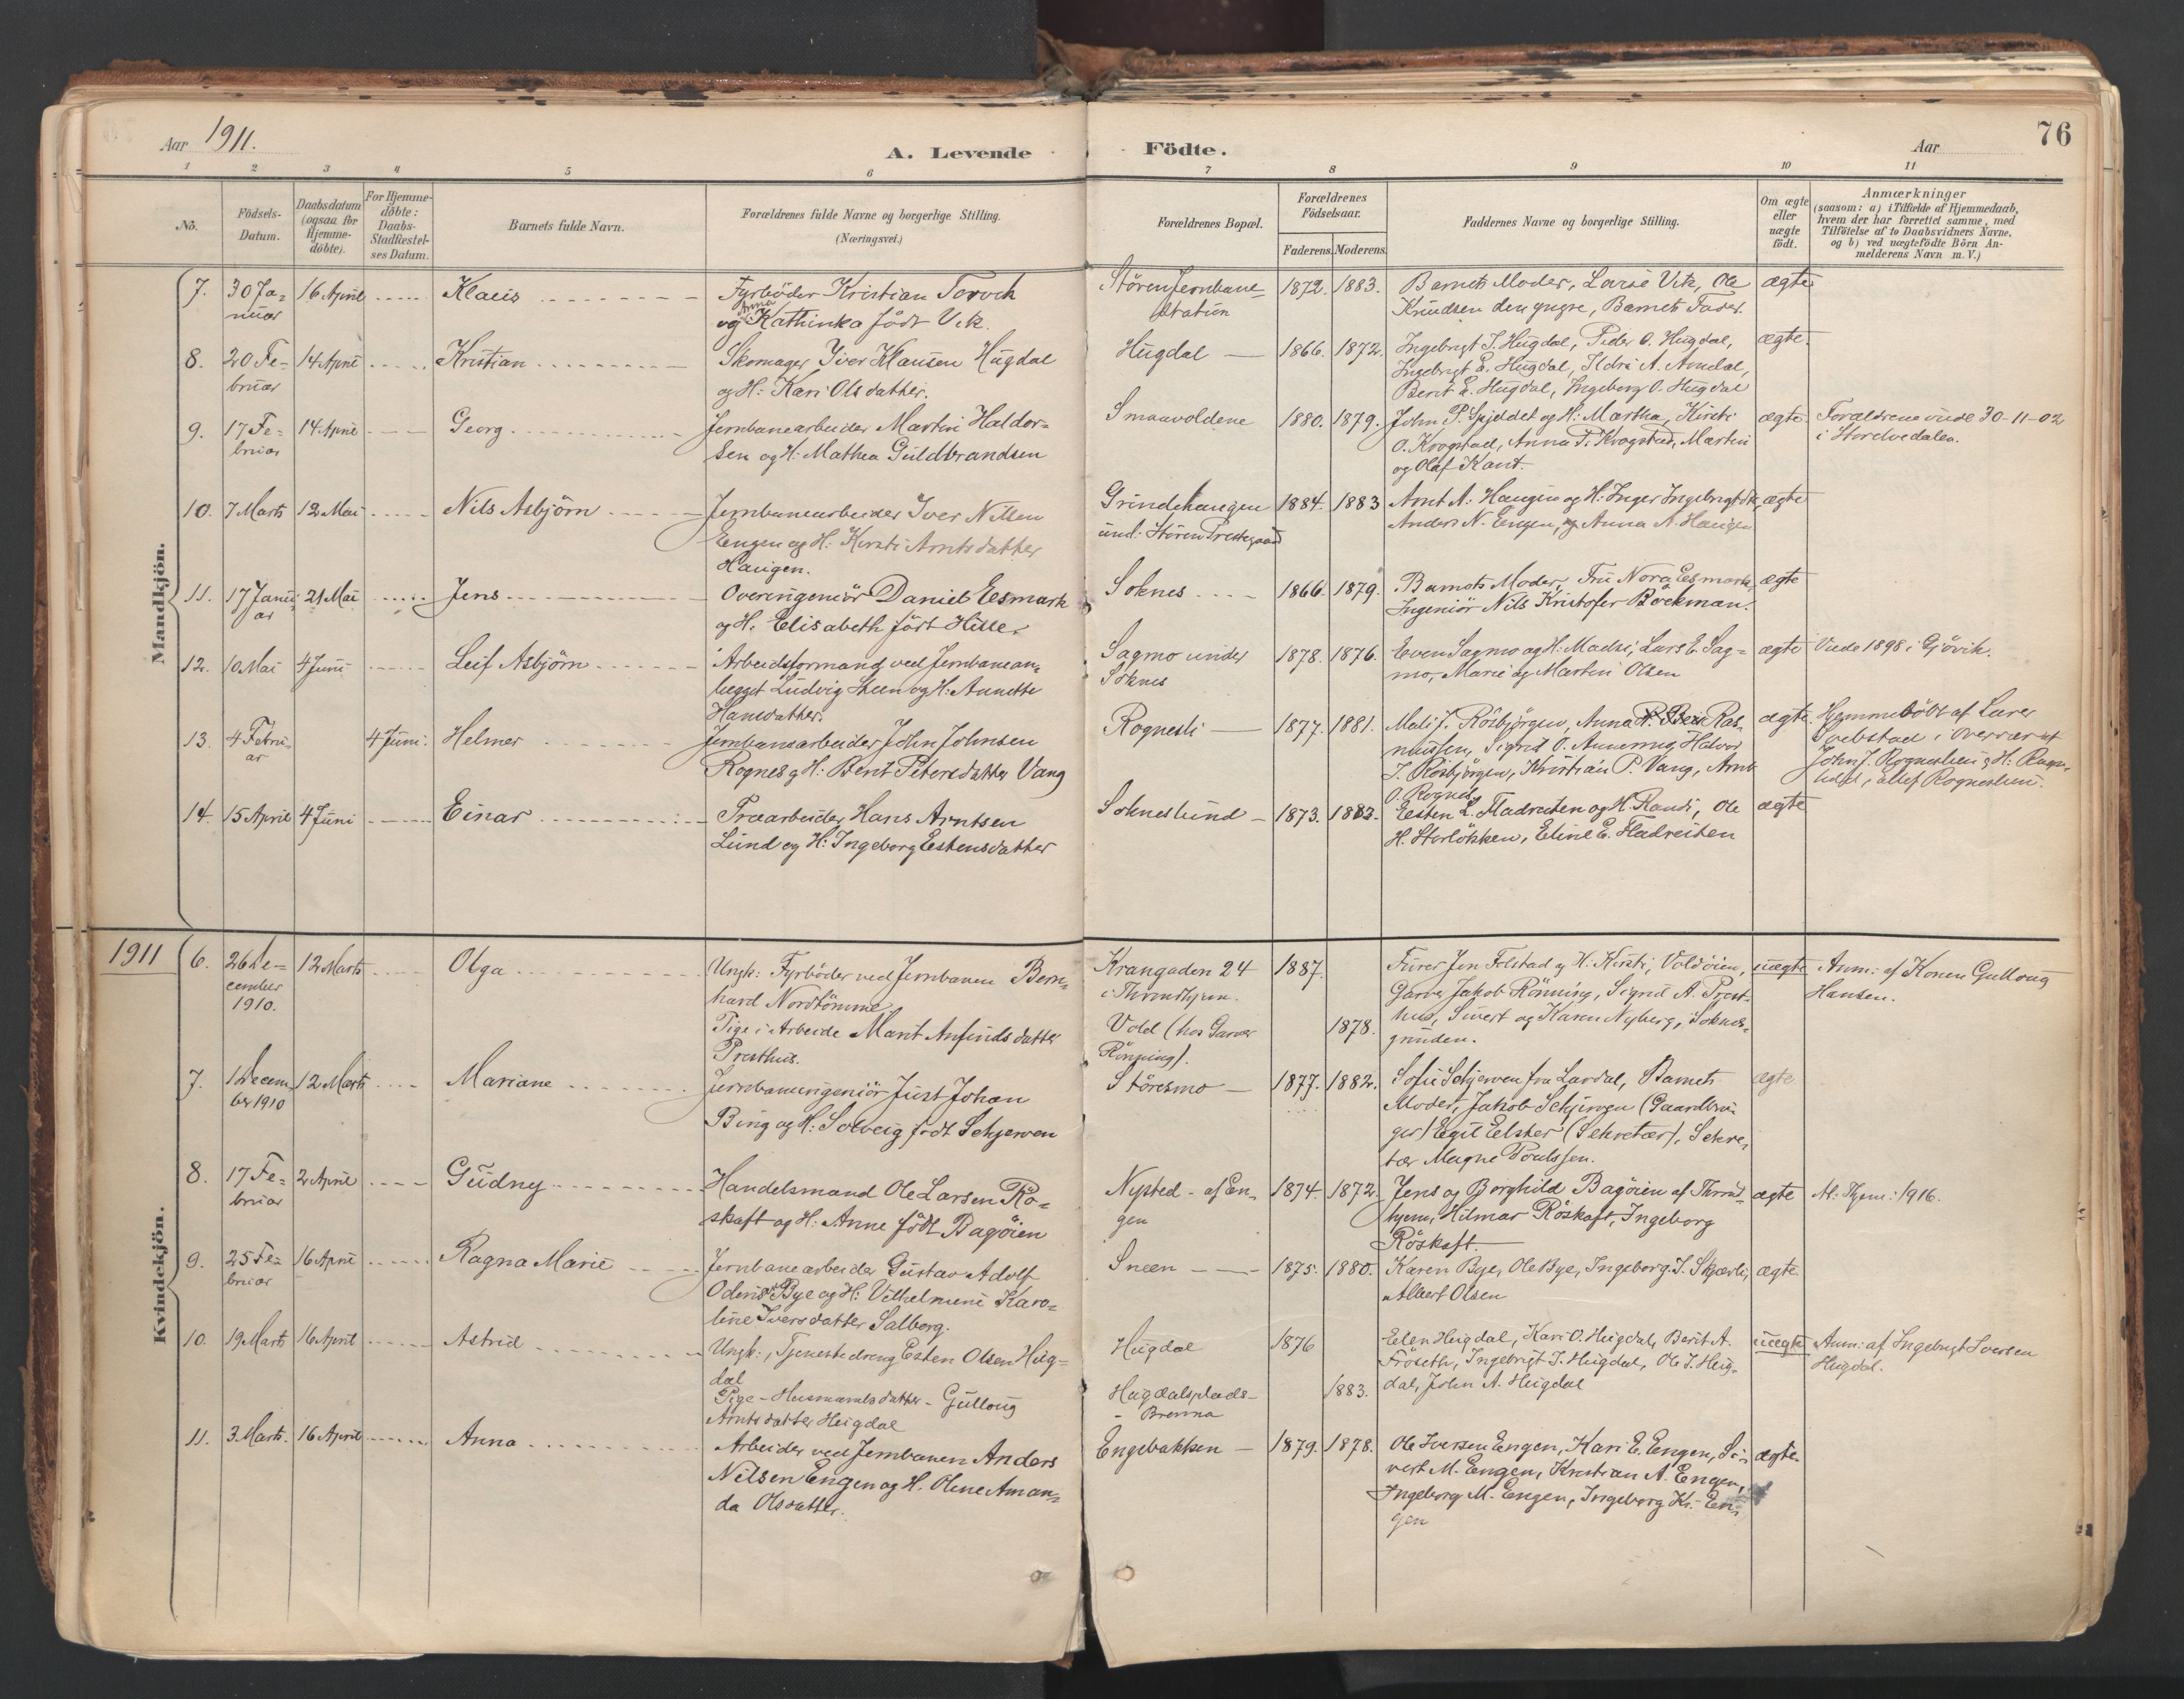 Aar 1911.
A. Levende Födte.
Aar
76
1 2 3 4 5 6 7 8 9 10 11
No.
Födsels-
Datum.
Daabsdatum
(ogsaa for
Hjemme-
döbte).
For Hjemme-
döbte:
Daabs-
Stadfæstel-
ses Datum.
Barnets fulde Navn.
Forældrenes fulde Navne og borgerlige Stilling.
(Næringsvei.)
Forældrenes Bopæl.
Forældrenes
Födselsaar.
Faderens. Moderens.
Faddernes Navne og borgerlige Stilling.
Om ægte
eller
uægte
födt.
Anmærkninger
(saasom: a) i Tilfælde af Hjemmedaab,
hvem der har forrettet samme, med
Tilföielse af to Daabsvidners Navne,
og b) ved uægtefödte Börn An-
melderens Navn m. V.)
Mandkjön.
7. 30 Ja-
nuar
16 April
Klaus
Fyrböder Kristian
og Anna Kathinka födt Vik.
Stören Jernbane-
station
1872. 1883.
Barnets Moder, Lovise Vik, Ole
Knudsen den yngre, Barnets Fader.
ægte
8. 20 Fe-
bruar
14 April
Kristian
Skomager Iver Klausen Hugdal
og H: Kari Olsdatter.
Hugdal
1866. 1872.
Ingebrigt I. Hugdal, Peder O. Hugdal,
Ingebrigt E. Hugdal, Ildri A. Amdal,
Berit E. Hugdal, Ingeborg O. Hugdal
ægte.
9. 17 Fe-
bruar
14 April
Georg
Jernbanearbeider Martin Haldor-
sen og H: Mathea Guldbrandsen
Smaavoldene
1880. 1879.
John P. Spjeldet og H: Martha, Kirsti
O. Krogstad, Anna P. Krogstad, Martin
og Olaf Kant.
ægte.
Forældrene viede 30-11-02
i Storelvedalen.
10. 7 Marts 12 Mai
Nils Asbjörn
Jernbanearbeider Iver Nilsen
Engen og H: Kirsti Arntsdatter
Haugen.
Grindehaugen
und: Stören Prestegaard
1884. 1883
Arnt A. Haugen og H: Inger Ingebrigtsdtr,
Anders N. Engen, og Anna A. Haugen
ægte
11. 17 Janu-
ar
21 Mai
Jens
Overingeniör Daniel Eesmark
og H: Elisabeth födt Hille.
Soknes
1866. 1879.
Barnets Moder, Fru Nora Eesmark,
Ingeniör Nils Kristofer Böckman.
ægte
12. 10 Mai 4 Juni
Leif Asbjörn
Arbeidsformand ved Jernbanean-
lægget Ludvig Steen og H: Annette
Hansdatter.
Sagmo under
Soknes
1878. 1876.
Even Sagmo og H: Madsi, Lars E. Sag-
mo, Marie og Martin Olsen
ægte
Viede 1898 i Gjövik.
13. 4 Febru-
ar
4 Juni.
Helmer
Jernbanearbeider John Johnsen
Rognes og H: Berit Petersdatter Vang
Rognesli
1877. 1881.
Mali J. Rösbjörgen, Anna Ras-
mussen, Sigrid O. Annemug, Halvor
J. Rösbjörgen, Kristian P. Vang, Arnt
O. Rognes.
ægte.
Hjemmedöbt af Lærer
i Overvær af
John J. Rogneslien og H:
14. 15 April 4 Juni
Einar
Træarbeider Hans Arntsen
Lund og H: Ingeborg Estensdatter
Sokneslund
1873. 1882.
Eesten L. Fladreiten og H. Randi, Ole
H. Storlökken, Eline E. Fladreiten
ægte
Kvindekjön.
1911
6. 26 De-
cember
1910.
12 Marts
Olga
Ungk: Fyrböder ved Jernbanen Bern-
hard Nordtömme
Pige i Arbeide Marit Anfindsdatter
Presthus.
Krangaden 24
i Throndhjem.
Vold (hos Garver
Rönning).
1887.
1878.
Furer Jon Folstad og H: Kirsti, Voldöien,
Garver Jakob Rönning, Sigrid A. Prest-
hus, Sivert og Karen Nyberg, Soknes-
grunden.
uægte
Anm: af Konen Gullaug
Hansen.
7. 1 Decem-
ber 1910
12 Marts
Mariane
Jernbaneingeniör Just Johan
Bing og H: Solveig födt Schjerven
Störesmo
1877. 1882.
Sofie Schjerven fra Lardal, Barnets
Moder, Jakob Schjerven (Gaardbru-
ger) Egil Elster (Sekretær), Sekre-
tær Magne Poulssen.
ægte
8. 17 Fe-
bruar
2 April
Gudny
Handelsmand Ole Larsen Rö-
skaft og H: Anne födt Bagöien
Nysted - af En-
gen
1874. 1872.
Jens og Borghild Bagöien af Thrond-
hjem, Hilmar Röskaft, Ingeborg
Röskaft.
ægte
1916.
9. 25 Fe-
bruar
16 April
Ragna Marie
Jernbanearbeider Gustav Adolf
Odenis Bye og H: Vilhelmine Karo-
line Iversdatter Salberg.
Sneen
1875. 1880.
Karen Bye, Ole Bye, Ingeborg I. Skjærli,
Albert Olsen
ægte.
10. 19 Marts 16 April
Astrid
Ungk:, Tjenestedreng Esten Olsen Hug-
dal
Pige - Husmandsdatter - Gullaug
Arntsdatter Hugdal
Hugdal
Hugdalsplads-
- Brenna
1876
1883.
Eelen Hugdal, Kari O. Hugdal, Berit A.
Fröseth, Ingebrigt I. Hugdal, Ole I. Hug-
dal, John A. Hugdal
uægte
Anm: af Ingebrigt Iversen
Hugdal.
11. 3 Marts. 16 April
Anna
Arbeider ved Jernbanen Anders
Nilsen Engen og H. Oline Aman-
da Olsdatter.
Engebakken
1879. 1878.
Ole Iversen Engen, Kari E. Engen, Si-
vert M. Engen, Kristian A. Engen,
Ingeborg M. Engen, Ingeborg Kr. En-
gen
ægte.